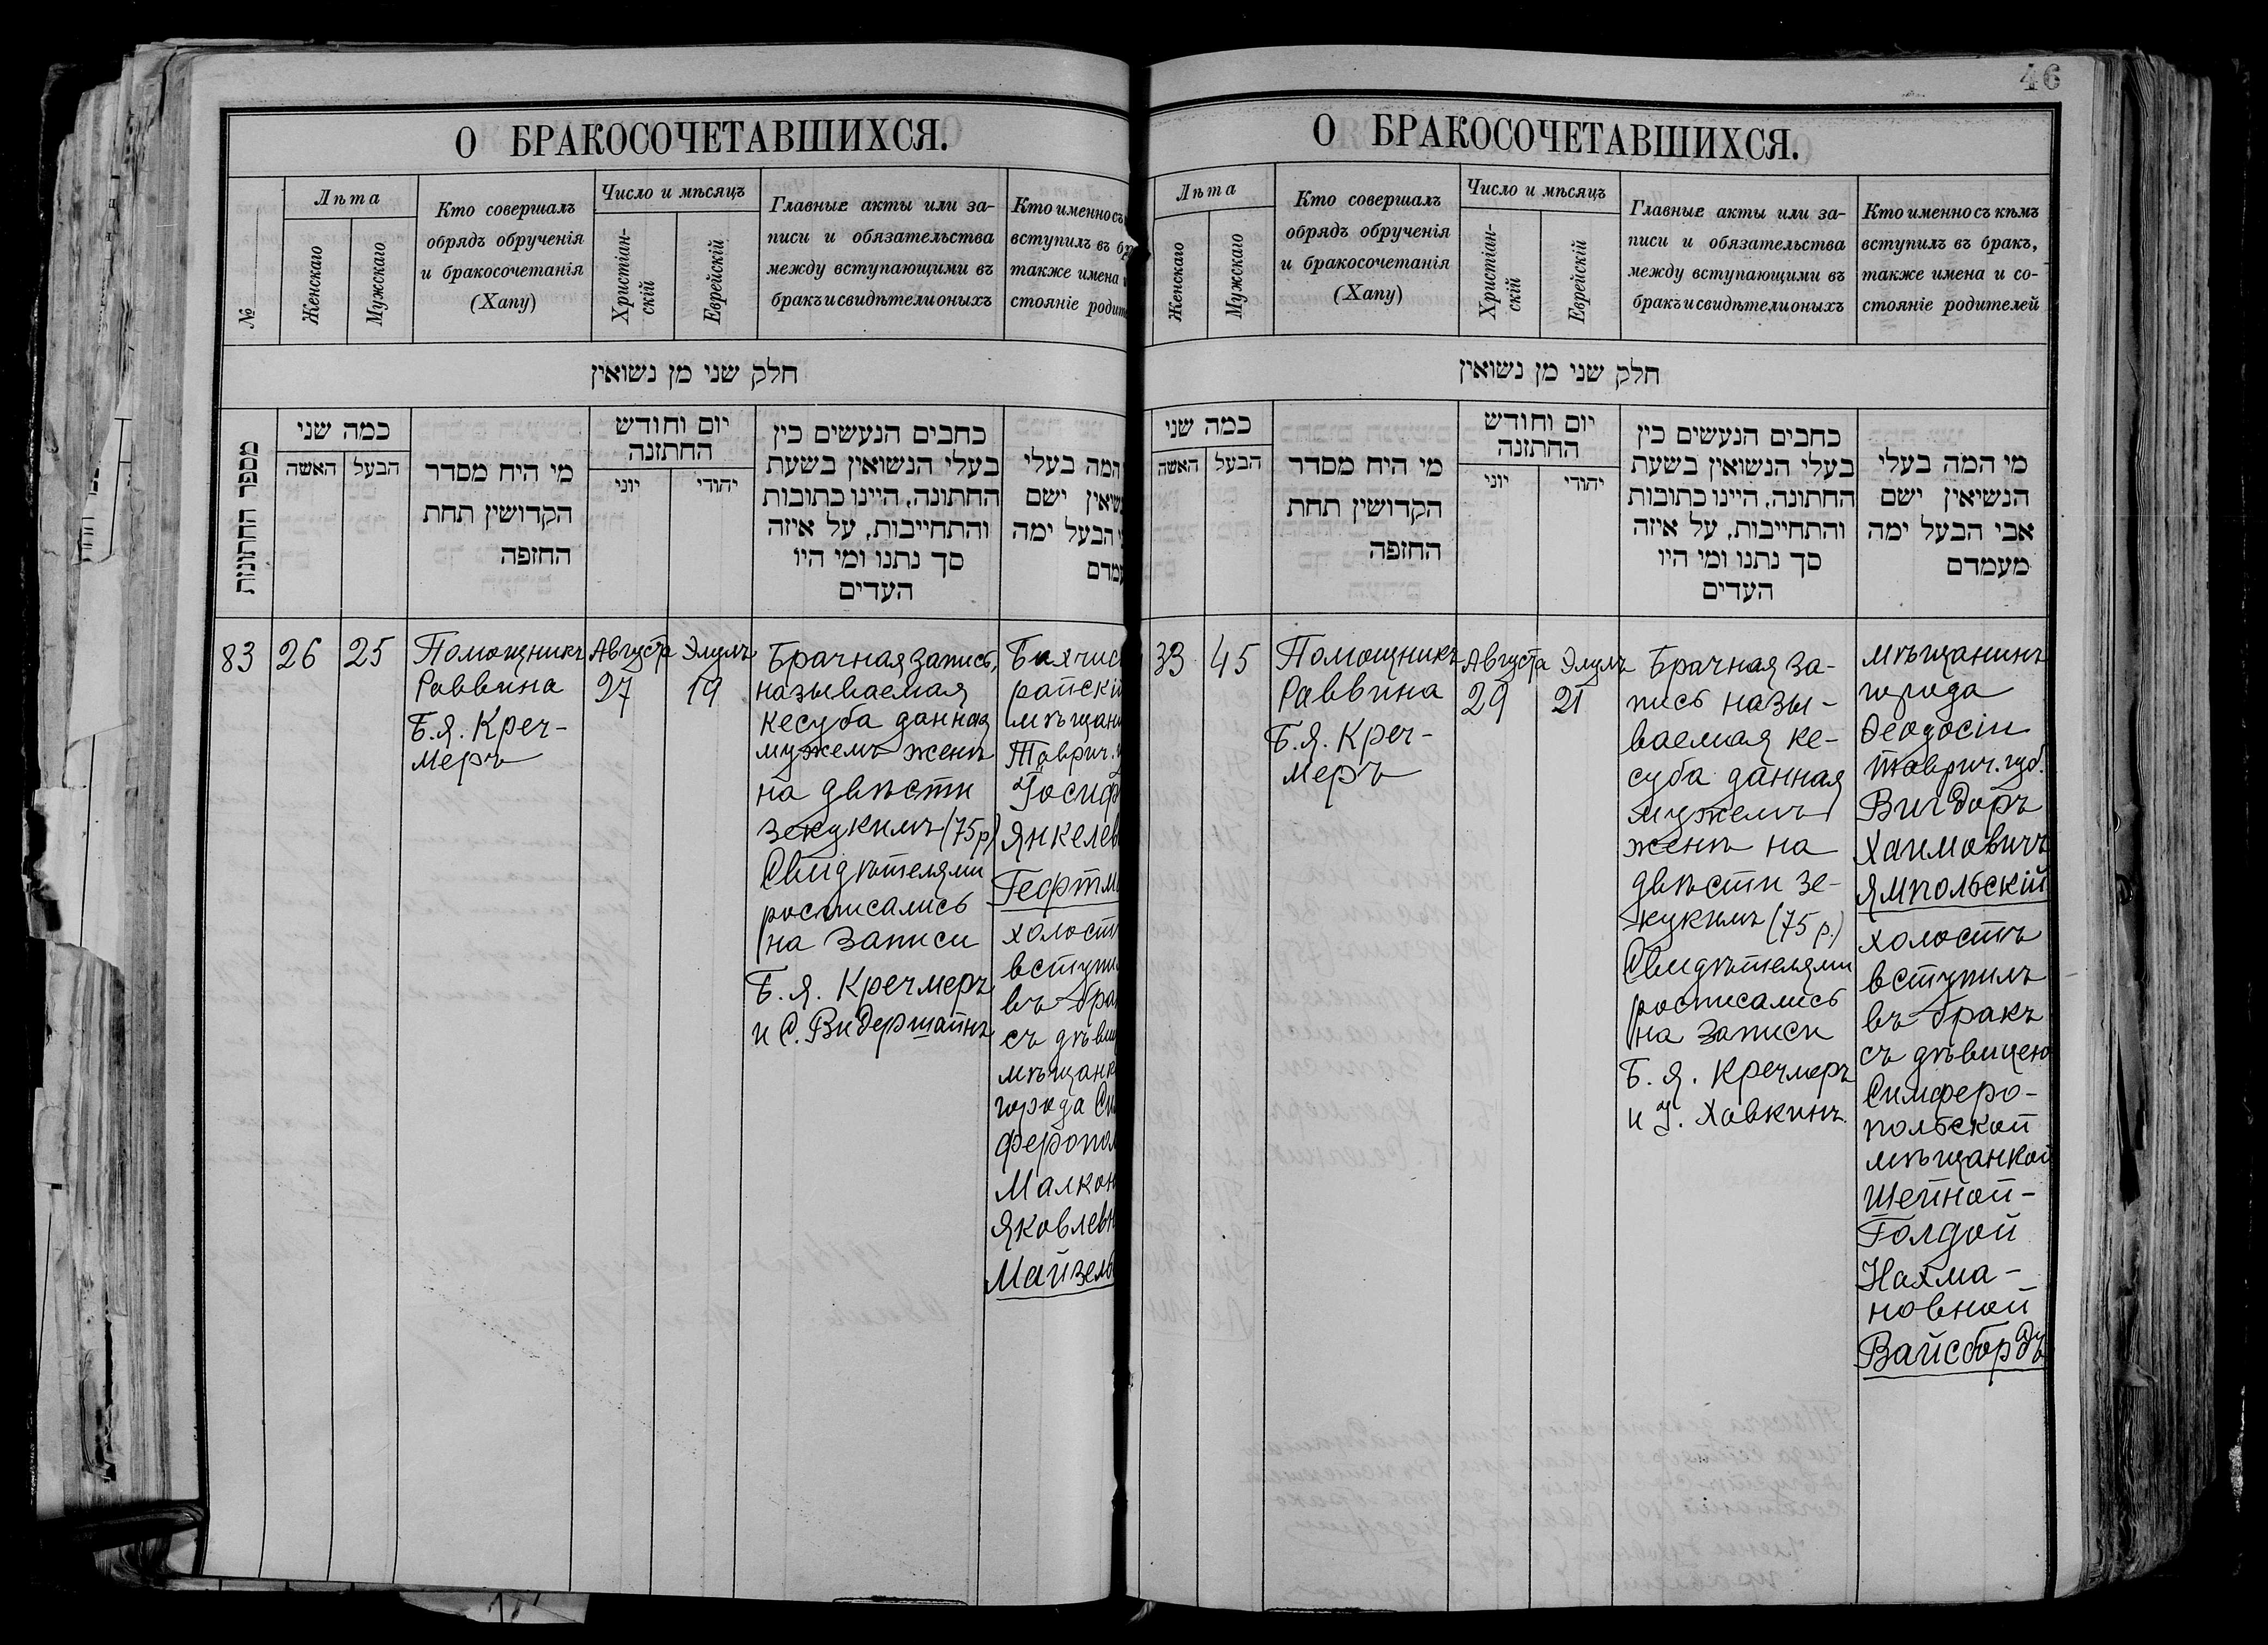 О БРАКОСОЧЕТАВШИХСЯ.
№
Лѣта
Женскаго
Мужскаго
Кто совершалъ
обрядъ обрученія
и бракосочетанія
(Хапу)
Число и мѣсяцъ
Христіан-
скій
Еврейскій
Главные акты или за-
писи и обязательства
между вступающими въ
бракъ и свидѣтели оныхъ
Кто именно съ
вступилъ въ бр
также имена и
стояніе родит
חלק שני מן נשואין
מספר החתונות
כמה שני
האשה
הבעל
מי היח מסדר
הקדושין תחת
החזפה
יום וחודש
החתזנה
יוני
יהודי
כחבים הנעשים כין
בעלי הנשואין בשעת
החתונה, היינו כתובות
והתחייבות, על איזה
סך נתנו ומי היו
העדים
המה בעלי
שיאין ישם
הבעל ימה
עמדם
83
26
25
Помощникъ
Раввина
Б. Я. Креч-
меръ
Августа
27
Элулъ
19
Брачная запись,
называемая
кесуба данная
мужемъ женѣ
на двѣсти
зекукимъ (75 р)
Свидѣтелями
росписались
на записи
Б. Я. Кречмеръ
и С. Видерштайнъ
Бахчис
райскій
мѣщани
Таврич. г
Іосиф
Янкелев
Гефтм
холост
вступи
въ бра
съ дѣви
мѣщанк
города Си
феропол
Малкой
Яковлевн
Майзель
46
О БРАКОСОЧЕТАВШИХСЯ.
Лѣта
Женскаго
Мужскаго
Кто совершалъ
обрядъ обрученія
и бракосочетанія
(Хапу)
Число и мѣсяцъ
Христіан-
скій
Еврейскій
Главные акты или за-
писи и обязательства
между вступающими въ
бракъ и свидѣтели оныхъ
Кто именно съ кѣмъ
вступилъ въ бракъ,
также имена и со-
стояніе родителей
חלק שני מן נשואין
כמה שני
האשה
הבעל
מי היח מסדר
הקדושין תחת
החזפה
יום וחודש
החתזנה
יוני
יהודי
כחבים הנעשים כין
בעלי הנשואין בשעת
החתונה, היינו כתובות
והתחייבות, על איזה
סך נתנו ומי היו
העדים
מי המה בעלי
הנשיאין ישם
אבי הבעל ימה
מעמדם
33
45
Помощникъ
Раввина
Б. Я. Креч-
меръ
Августа
29
Элулъ
21
Брачная за-
пись назы-
ваемая ке-
суба данная
мужемъ
женѣ на
двѣсти зе-
кукимъ (75 р.)
Свидѣтелями
росписались
на записи
Б. Я. Кречмеръ
и У. Хавкинъ
Мѣщанинъ
города
Ѳеодосіи
Таврич. губ.
Вигдоръ
Хаимовичъ
Ямпольскій
холостъ
вступилъ
въ бракъ
съ дѣвицею
Симферо-
польской
мѣщанкой
Шейной-
Голдой
Нахма-
новной
Вайсбордъ